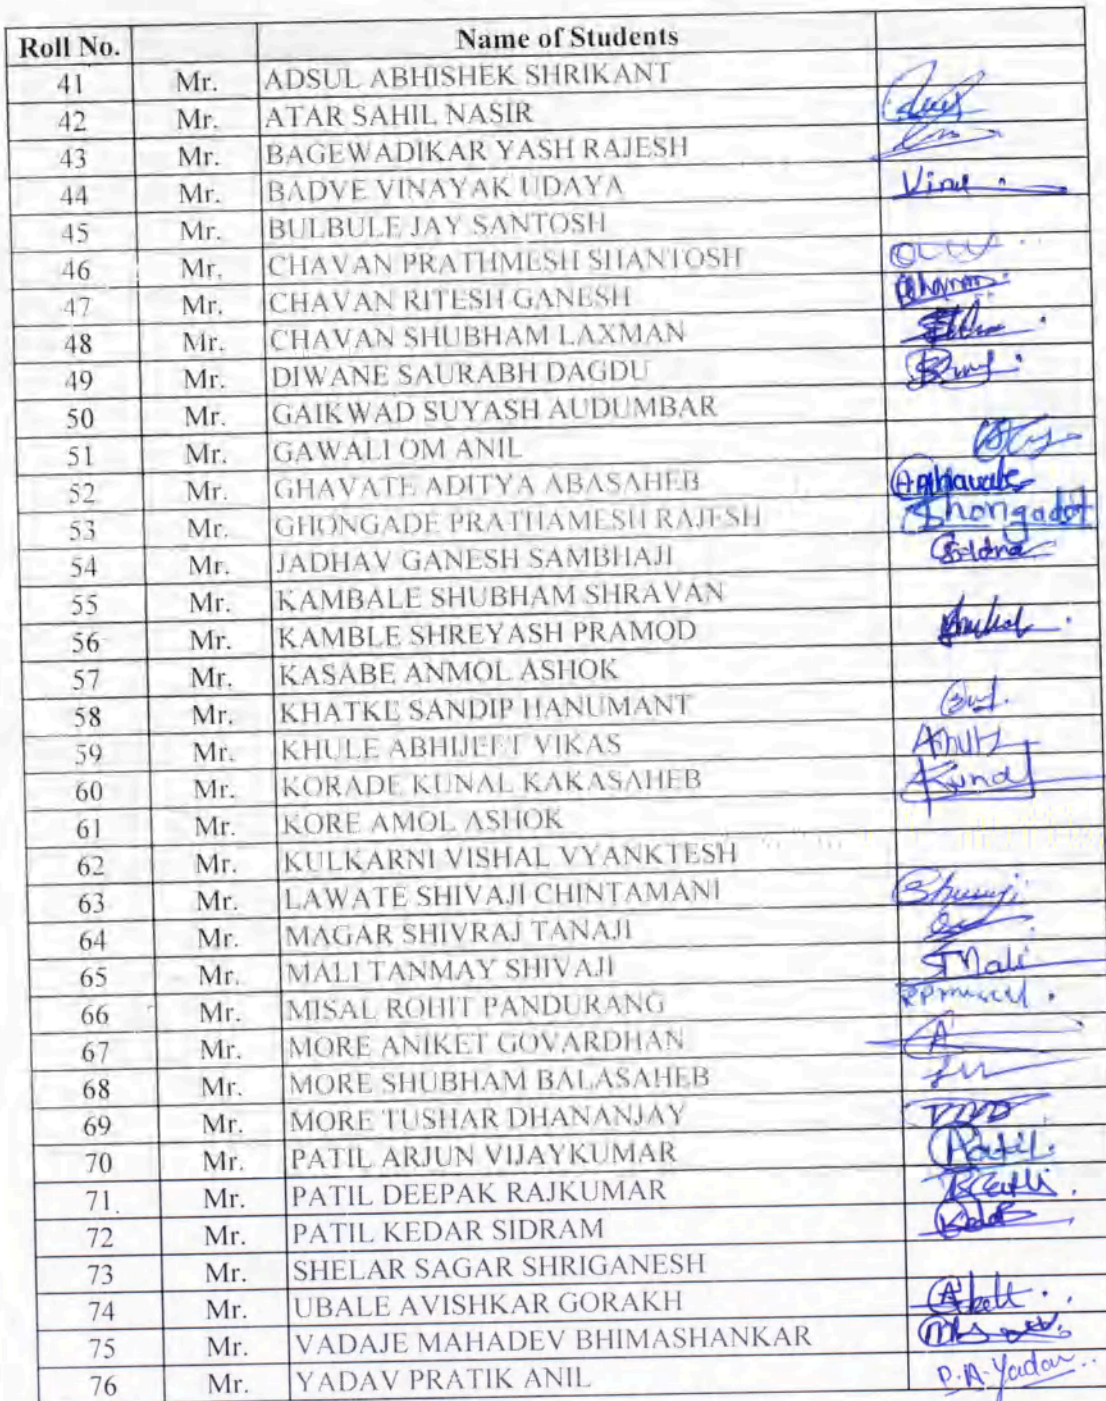 Roll No. Name of Students
41 Mr. ADSUL ABHISHEK SHRIKANT
42 Mr. ATAR SAHIL NASIR
43 Mr. BAGEWADIKAR YASH RAJESH
44 Mr. BADVE VINAYAK UDAYA
45 Mr. BULBULE JAY SANTOSH
46 Mr. CHAVAN PRATHMESH SHANTOSH
47 Mr. CHAVAN RITESH GANESH
48 Mr. CHAVAN SHUBHAM LAXMAN
49 Mr. DIWANE SAURABH DAGDU
50 Mr. GAIKWAD SUYASH AUDUMBAR
51 Mr. GAWALI OM ANIL
52 Mr. GHAVATE ADITYA ABASAHEB
53 Mr. GHONGADE PRATHAMESH RAJESH
54 Mr. JADHAV GANESH SAMBHAJI
55 Mr. KAMBALE SHUBHAM SHRAVAN
56 Mr. KAMBLE SHREYASH PRAMOD
57 Mr. KASABE ANMOL ASHOK
58 Mr. KHATKE SANDIP HANUMANT
59 Mr. KHULE ABHIJEET VIKAS
60 Mr. KORADE KUNAL KAKASAHEB Kunal
61 Mr. KORE AMOL ASHOK
62 Mr. KULKARNI VISHAL VYANKTESH
63 Mr. LAWATE SHIVAJI CHINTAMANI
64 Mr. MAGAR SHIVRAJ TANAJI
65 Mr. MALI TANMAY SHIVAJI TMali
66 Mr. MISAL ROHIT PANDURANG
67 Mr. MORE ANIKET GOVARDHAN
68 Mr. MORE SHUBHAM BALASAHEB
69 Mr. MORE TUSHAR DHANANJAY
70 Mr. PATIL ARJUN VIJAYKUMAR
71 Mr. PATIL DEEPAK RAJKUMAR
72 Mr. PATIL KEDAR SIDRAM
73 Mr. SHELAR SAGAR SHRIGANESH
74 Mr. UBALE AVISHKAR GORAKH
75 Mr. VADAJE MAHADEV BHIMASHANKAR
76 Mr. YADAV PRATIK ANIL P.A.Yadav..